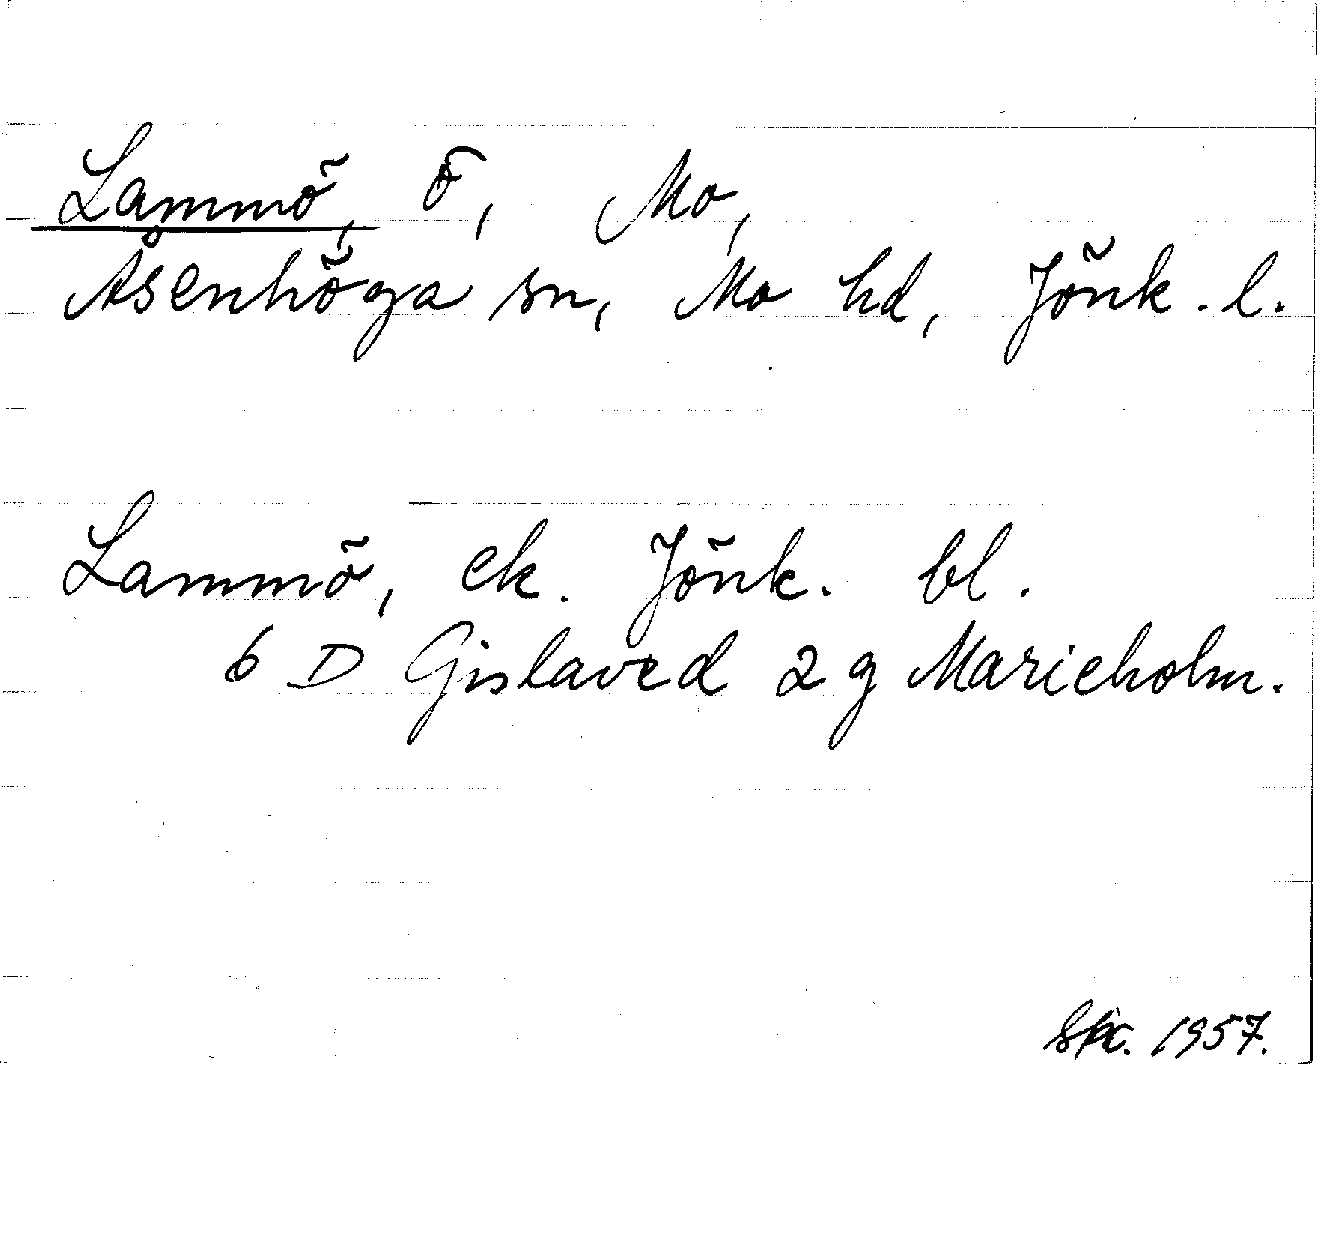 Lammö, ö, Mo,
Åsenhöga sn, Mo hd, Jönk. l.
Lammö, ek. Jönk. bl.
6 D Gislaved 2 g Marieholm.
1957.